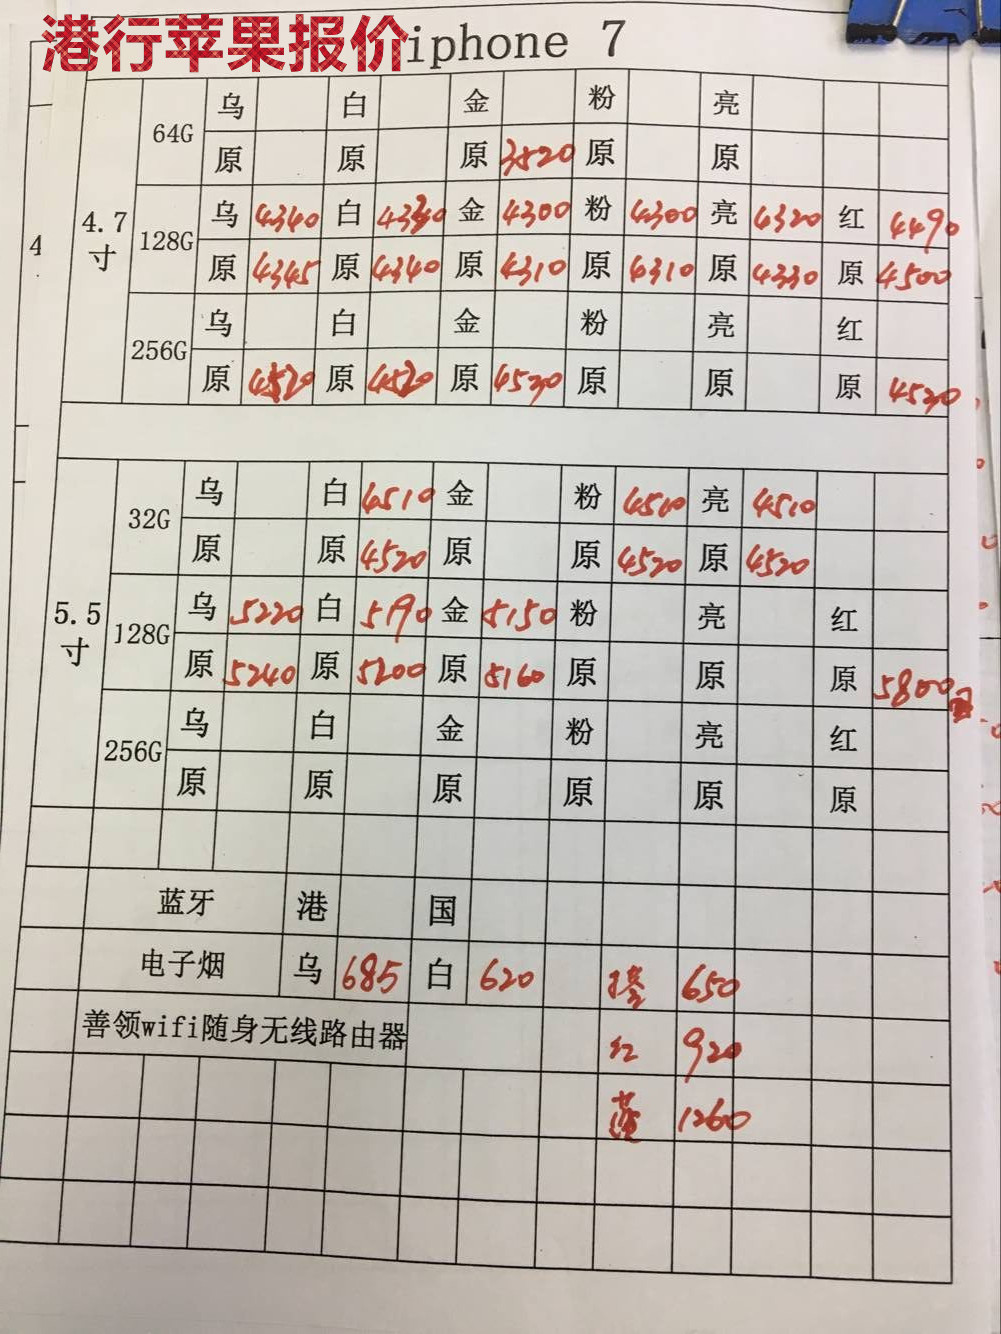 港行苹果报价 iphone 7
64G 乌 白 金 粉 亮
原 原 原 3520 原 原
4.7寸 128G 乌 4340 白 金 4300 粉 4300 亮 4320 红 4490
原 4345 原 4340 原 4310 原 4310 原 4330 原 4500
4
256G 乌 白 金 粉 亮 红
原 4520 原 4520 原 4520 原 原 原 4520
32G 乌 白 4510 金 粉 4510 亮 4510
原 原 4520 原 原 4520 原 4520
5.5寸 128G 乌 5220 白 5190 金 5150 粉 亮 红
原 5240 原 5200 原 5160 原 原 原 5800
256G 乌 白 金 粉 亮 红
原 原 原 原 原 原
蓝牙 港 国
电子烟 乌 685 白 620 650
善领wifi随身无线路由器 红 920
蓝 1260